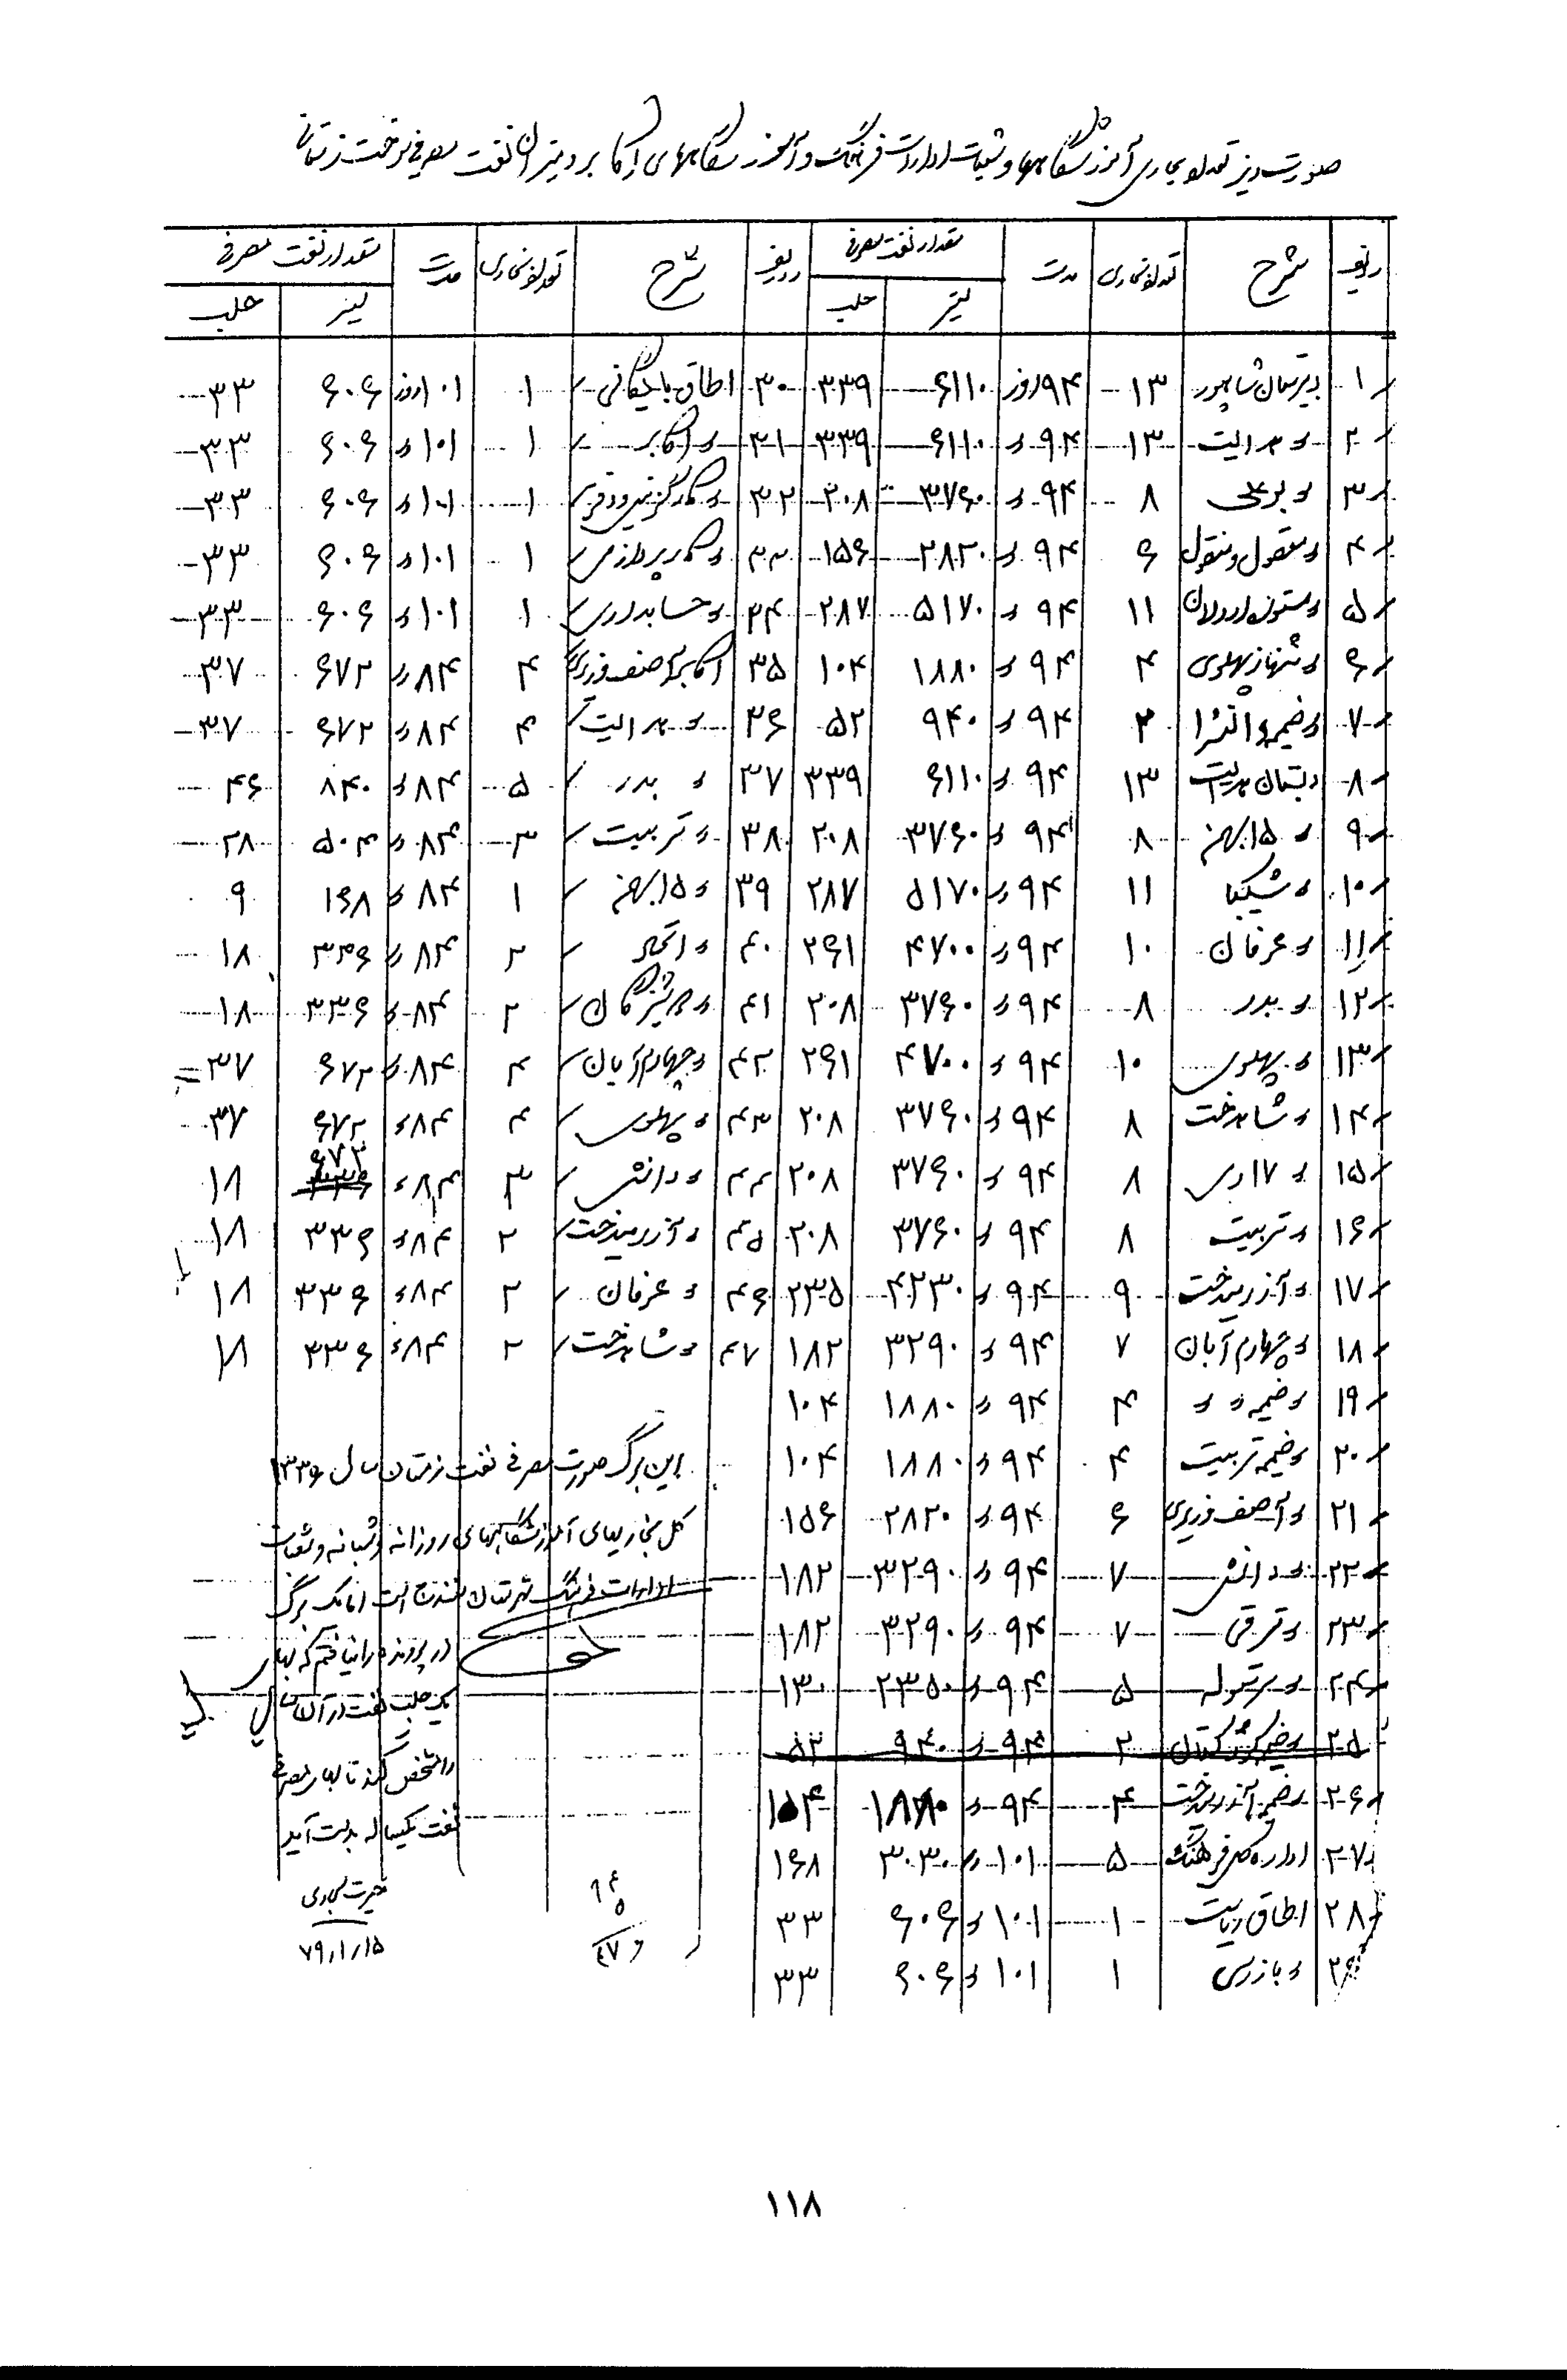 صورت ریز تعداد بخاری آموزشگاهها و شعبات ادارات فرهنگ و آموزشگاههای اکابر و میزان نفت مصرفی سوخت زمستان
ردیف شرح تعداد بخاری مدت مقدار نفت مصرفی ردیف شرح تعداد بخاری مدت مقدار نفت مصرفی
لیتر حلب لیتر حلب
۱ دبیرستان شاپور ۱۳ ۹۴ روز ۶۱۱۰ ۳۳۹ ۳۰ اطاق بایگانی ۱ ۱۰۱ روز ۶۰۶ ۳۳
۲ " هدایت ۱۳ ۹۴ " ۶۱۱۰ ۳۳۹ ۳۱ " اکابر ۱ ۱۰۱ " ۶۰۶ ۳۳
۳ " بوعلی ۸ ۹۴ " ۳۷۶۰ ۲۰۸ ۳۲ " کارگزینی و دفتر ۱ ۱۰۱ " ۶۰۶ ۳۳
۴ " معقول و منقول ۶ ۹۴ " ۲۸۲۰ ۱۵۶ ۳۳ " کارپردازی ۱ ۱۰۱ " ۶۰۶ ۳۳
۵ " مستوره اردلان ۱۱ ۹۴ " ۵۱۷۰ ۲۸۷ ۳۴ " حسابداری ۱ ۱۰۱ " ۶۰۶ ۳۳
۶ " شهناز پهلوی ۴ ۹۴ " ۱۸۸۰ ۱۰۴ ۳۵ اکابر آصف وزیری ۴ ۸۴ " ۶۷۲ ۳۷
۷ " ضمیمه دانشسرا ۲ ۹۴ " ۹۴۰ ۵۲ ۳۶ " هدایت ۴ ۸۴ " ۶۷۲ ۳۷
۸ دبستان هدایت ۱۳ ۹۴ " ۶۱۱۰ ۳۳۹ ۳۷ " بدر ۵ ۸۴ " ۸۴۰ ۴۶
۹ " ۱۵ بهمن ۸ ۹۴ " ۳۷۶۰ ۲۰۸ ۳۸ " تربیت ۳ ۸۴ " ۵۰۴ ۲۸
۱۰ " شکیبا ۱۱ ۹۴ " ۵۱۷۰ ۲۸۷ ۳۹ " ۱۵ بهمن ۱ ۸۴ " ۱۶۸ ۹
۱۱ " عرفان ۱۰ ۹۴ " ۴۷۰۰ ۲۶۱ ۴۰ " اتحاد ۲ ۸۴ " ۳۳۶ ۱۸
۱۲ " بدر ۸ ۹۴ " ۳۷۶۰ ۲۰۸ ۴۱ " دوشیزگان ۲ ۸۴ " ۳۳۶ ۱۸
۱۳ " پهلوی ۱۰ ۹۴ " ۴۷۰۰ ۲۶۱ ۴۲ " چهارم آبان ۴ ۸۴ " ۶۷۲ ۳۷
۱۴ " شاهدخت ۸ ۹۴ " ۳۷۶۰ ۲۰۸ ۴۳ " پهلوی ۴ ۸۴ " ۶۷۲ ۳۷
۱۵ " ۱۷ دی ۸ ۹۴ " ۳۷۶۰ ۲۰۸ ۴۴ " دانش ۳ ۸۴ " ۶۷۲ ۳۳۶ ۱۸
۱۶ " تربیت ۸ ۹۴ " ۳۷۶۰ ۲۰۸ ۴۵ " آذرمیدخت ۲ ۸۴ " ۳۳۶ ۱۸
۱۷ " آذرمیدخت ۹ ۹۴ " ۴۲۳۰ ۲۳۵ ۴۶ " عرفان ۲ ۸۴ " ۳۳۶ ۱۸
۱۸ " چهارم آبان ۷ ۹۴ " ۳۲۹۰ ۱۸۲ ۴۷ " شاهدخت ۲ ۸۴ " ۳۳۶ ۱۸
۱۹ " ضمیمه " " ۴ ۹۴ " ۱۸۸۰ ۱۰۴
۲۰ " ضمیمه تربیت ۴ ۹۴ " ۱۸۸۰ ۱۰۴
۲۱ " آصف وزیری ۶ ۹۴ " ۲۸۲۰ ۱۵۶
۲۲ " دانش ۷ ۹۴ " ۳۲۹۰ ۱۸۲
۲۳ " ترقی ۷ ۹۴ " ۳۲۹۰ ۱۸۲
۲۴ " سرتپوله ۵ ۹۴ " ۲۳۵۰ ۱۳۰
۲۵ " ۲ ۹۴ " ۹۴۰ ۵۲
۲۶ " ضمیمه آذرمیدخت ۴ ۹۴ " ۱۸۸۰ ۱۰۴
۲۷ اداره کل فرهنگ ۵ ۱۰۱ " ۳۰۳۰ ۱۶۸
۲۸ اطاق ریاست ۱ ۱۰۱ " ۶۰۶ ۳۳
۲۹ " بازرسی ۱ ۱۰۱ " ۶۰۶ ۳۳
این برگ صورت مصرفی نفت زمستان سال ۱۳۳۶
کل بخاریهای آموزشگاههای روزانه و شبانه و شعبات
ادارات فرهنگ شهرستان سنندج است اما یک برگ
در پرونده را نیافتم که بهای
یک حلب نفت در آن سال
را مشخص کند تا بهای مصرفی
نفت یکساله بدست آید
حیرت سجادی
۷۹/۱/۱۵
۱۱۸